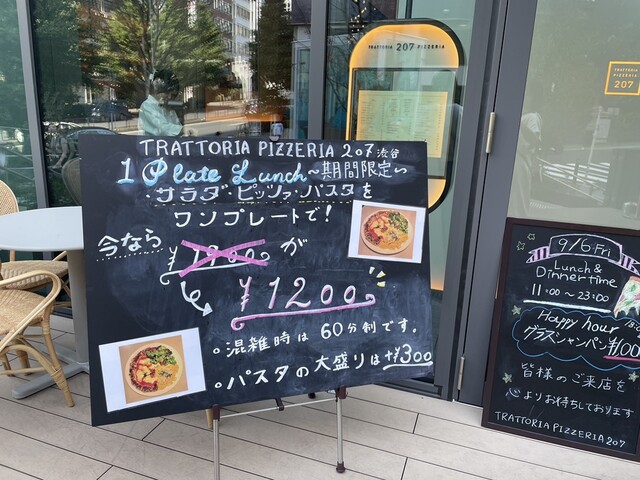 TRATTORIA 207 PIZZERIA
TRATTORIA PIZZERIA 207 渋谷
1 Plate Lunch ~期間限定~
・サラダ・ピッツァ・パスタを
ワンプレートで!
今なら
¥1700が
¥1200
。混雑時は60分制です。
。パスタの大盛りは+¥300
TRATTORIA
PIZZERIA
207
9/6 Fri
Lunch &
Dinner time
11:00~23:00
Happy hour
グラスシャンパン¥100
皆様のご来店を
心よりお待ちしております
TRATTORIA PIZZERIA 207